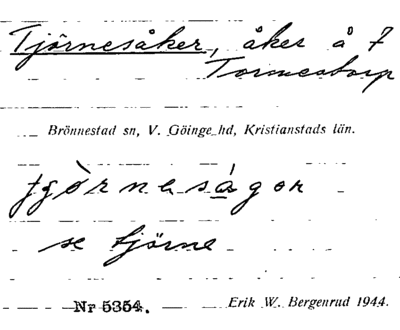 Tjörnesåker, åker å 7
Tormestorp
Brönnestad sn, V. Göinge hd, Kristianstads län.
tjòrnesågor
se tjörne
Nr 5354. Erik W. Bergenrud 1944.